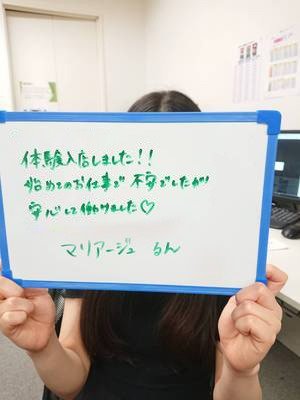 体験入店しました!!
始めてのお仕事で不安でしたが
安心して働けました♡
マリアージュ るん